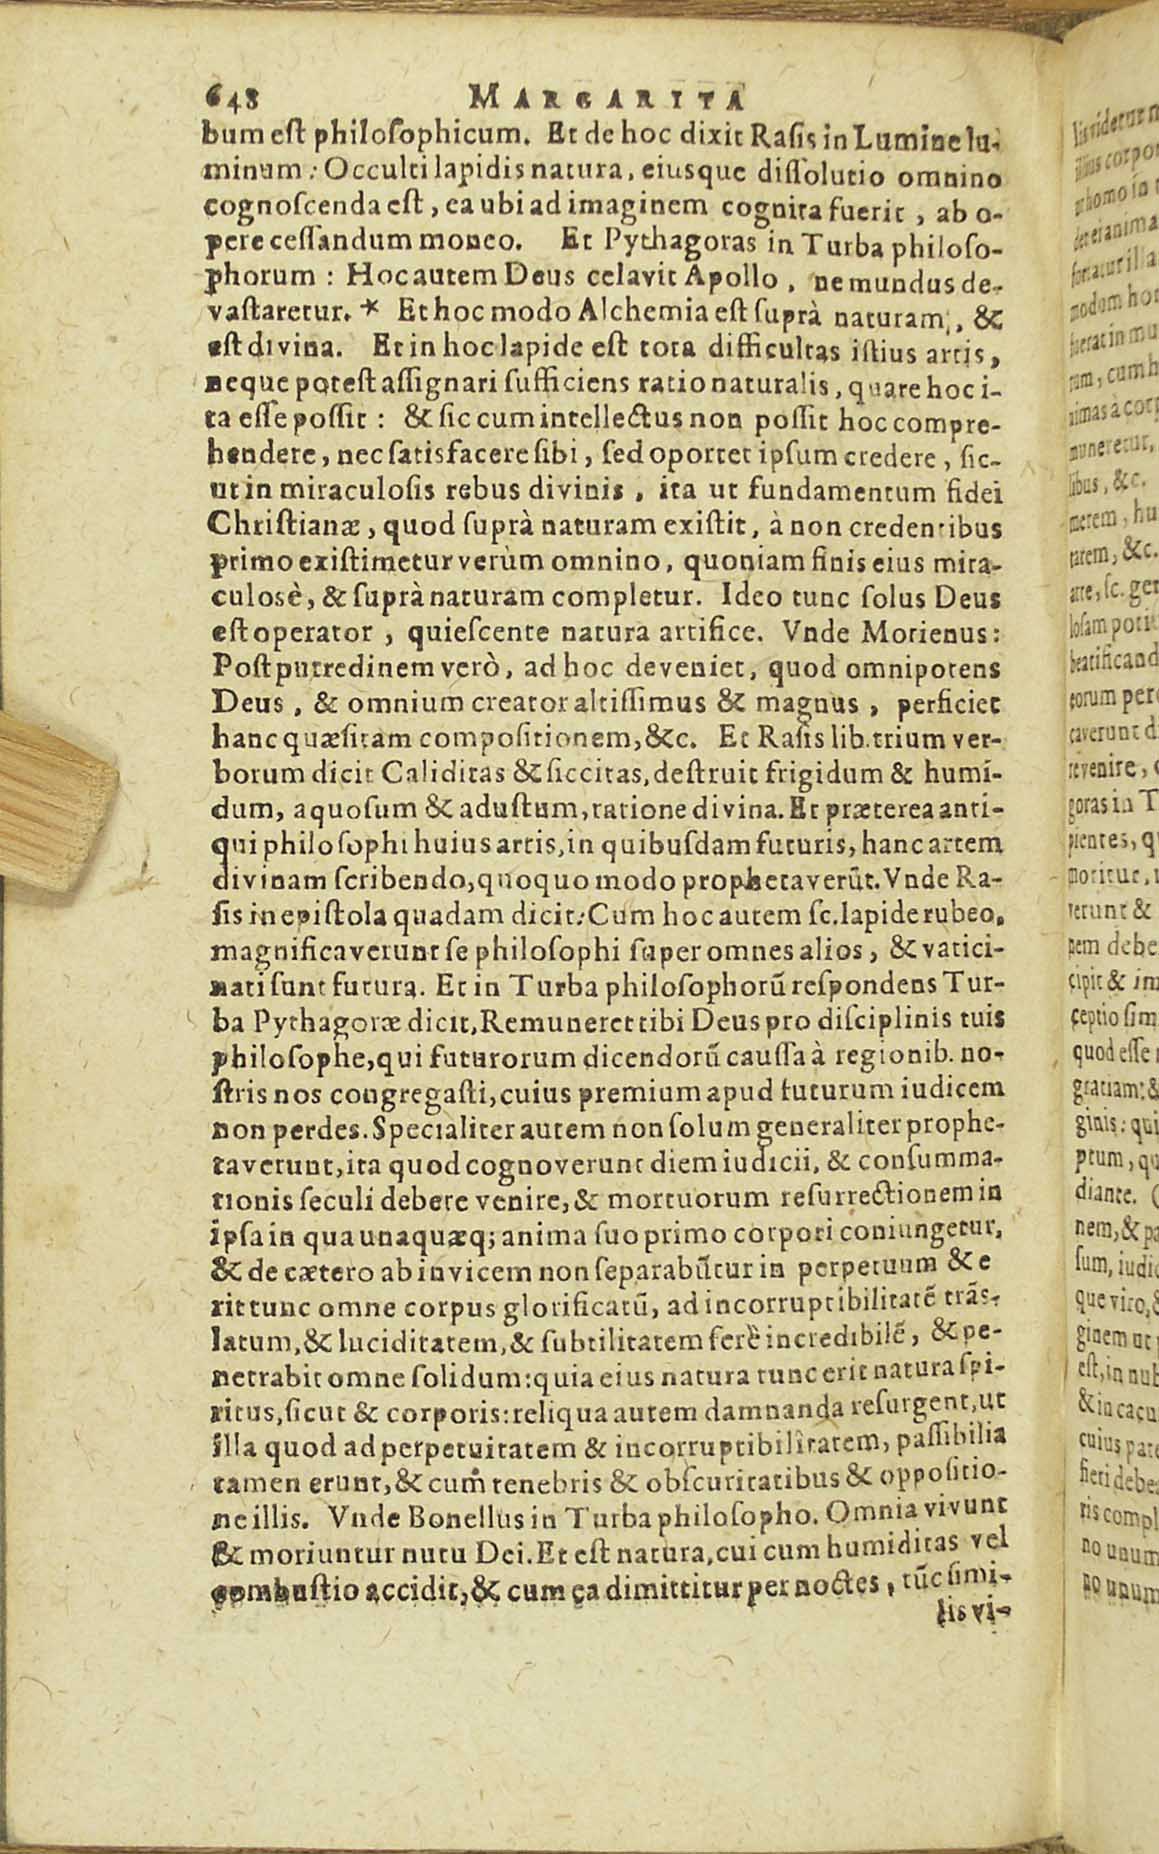 648 MARGARITA
bum est philosophicum. Et de hoc dixit Rasis in Lumine lu-
minum: Occulti lapidis natura, eiusque dissolutio omnino
cognoscenda est, ea ubi ad imaginem cognita fuerit, ab o-
pere cessandum moneo. Et Pythagoras in Turba philoso-
phorum: Hoc autem Deus celavit Apollo, ne mundus de-
vastaretur. * Et hoc modo Alchemia est suprà naturam, &
est divina. Et in hoc lapide est tota difficultas istius artis,
neque potest assignari sufficiens ratio naturalis, quare hoc i-
ta esse possit: & sic cum intellectus non possit hoc compre-
hendere, nec satisfacere sibi, sed oportet ipsum credere, sic-
ut in miraculosis rebus divinis, ita ut fundamentum fidei
Christianæ, quod suprà naturam existit, à non credentibus
primo existimetur verùm omnino, quoniam finis eius mira-
culosè, & suprà naturam completur. Ideo tunc solus Deus
est operator, quiescente natura artifice. Vnde Morienus:
Post putredinem verò, ad hoc deveniet, quod omnipotens
Deus, & omnium creator altissimus & magnus, perficiet
hanc quæsitam compositionem, &c. Et Rasis lib. trium ver-
borum dicit Caliditas & siccitas, destruit frigidum & humi-
dum, aquosum & adustum, ratione divina. Et præterea anti-
qui philosophi huius artis, in quibusdam futuris, hanc artem
divinam scribendo, quoquo modo prophetaverũt. Vnde Ra-
sis in epistola quadam dicit: Cum hoc autem sc. lapide rubeo,
magnificaverunt se philosophi super omnes alios, & vatici-
nati sunt futura. Et in Turba philosophorũ respondens Tur-
ba Pythagoræ dicit, Remuneret tibi Deus pro disciplinis tuis
philosophe, qui futurorum dicendorũ caussa à regionib. no-
stris nos congregasti, cuius premium apud futurum iudicem
non perdes. Specialiter autem non solum generaliter prophe-
taverunt, ita quod cognoverunt diem iudicii, & consumma-
tionis seculi debere venire, & mortuorum resurrectionem in
ipsa in qua unaquæq; anima suo primo corpori coniungetur,
& de cætero ab invicem non separabũtur in perpetuum & e
rit tunc omne corpus glorificatũ, ad incorruptibilitatẽ trãs-
latum, & luciditatem, & subtilitatem ferè incredibilẽ, & pe-
netrabit omne solidum: quia eius natura tunc erit natura spi-
ritus, sicut & corporis: reliqua autem damnanda resurgent, ut
illa quod ad perpetuitatem & incorruptibilitatem, passibilia
tamen erunt, & cum tenebris & obscuritatibus & oppositio-
ne illis. Vnde Bonellus in Turba philosopho. Omnia vivunt
& moriuntur nutu Dei. Et est natura, cui cum humiditas vel
combustio accidit, & cum ea dimittitur per noctes, tũc simi-
lis vi-